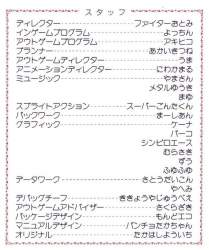 スタッフ
ディレクター ファイターおとみ
インゲームプログラム よっちん
アウトゲームプログラム アキヒコ
プランナー あかいきつね
アウトゲームディレクター うま
アニメーションディレクター にわかまる
ミュージック やまさん
メタルゆうき
まゆ
スプライトアクション スーパーごんたくん
バックワーク まーしあん
グラフィック ケーナ
パーコ
シンピロエース
むらさき
ずう
ふゆふゆ
データワーク さとうだいこん
やへみ
デバッグチーフ ききょうやじゅうべえ
アウトゲームアドバイザー さくらざき
パッケージデザイン もんどエコ
マニュアルデザイン パンチョたかちゃん
オリジナル たかはしょういち